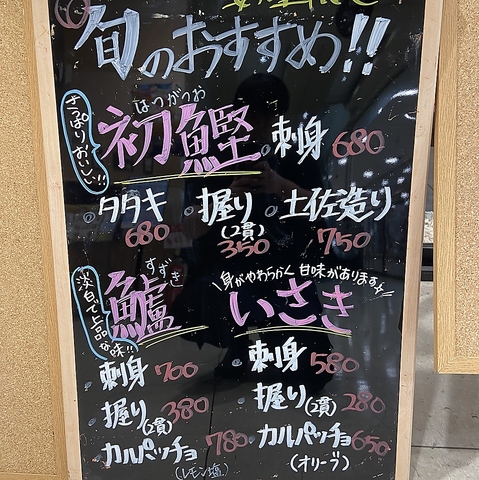 旬のおすすめ!!
さっぱりおいしい!!
はつがつお
初鰹
刺身 680
タタキ 680
握り(2貫) 350
土佐造り 750
淡白で上品な味!!
すずき
鱸
刺身 700
握り(2貫) 380
カルパッチョ 780
(レモン塩)
身がやわらかく 甘味があります☆
いさき
刺身 580
握り(2貫) 280
カルパッチョ 650
(オリーブ)